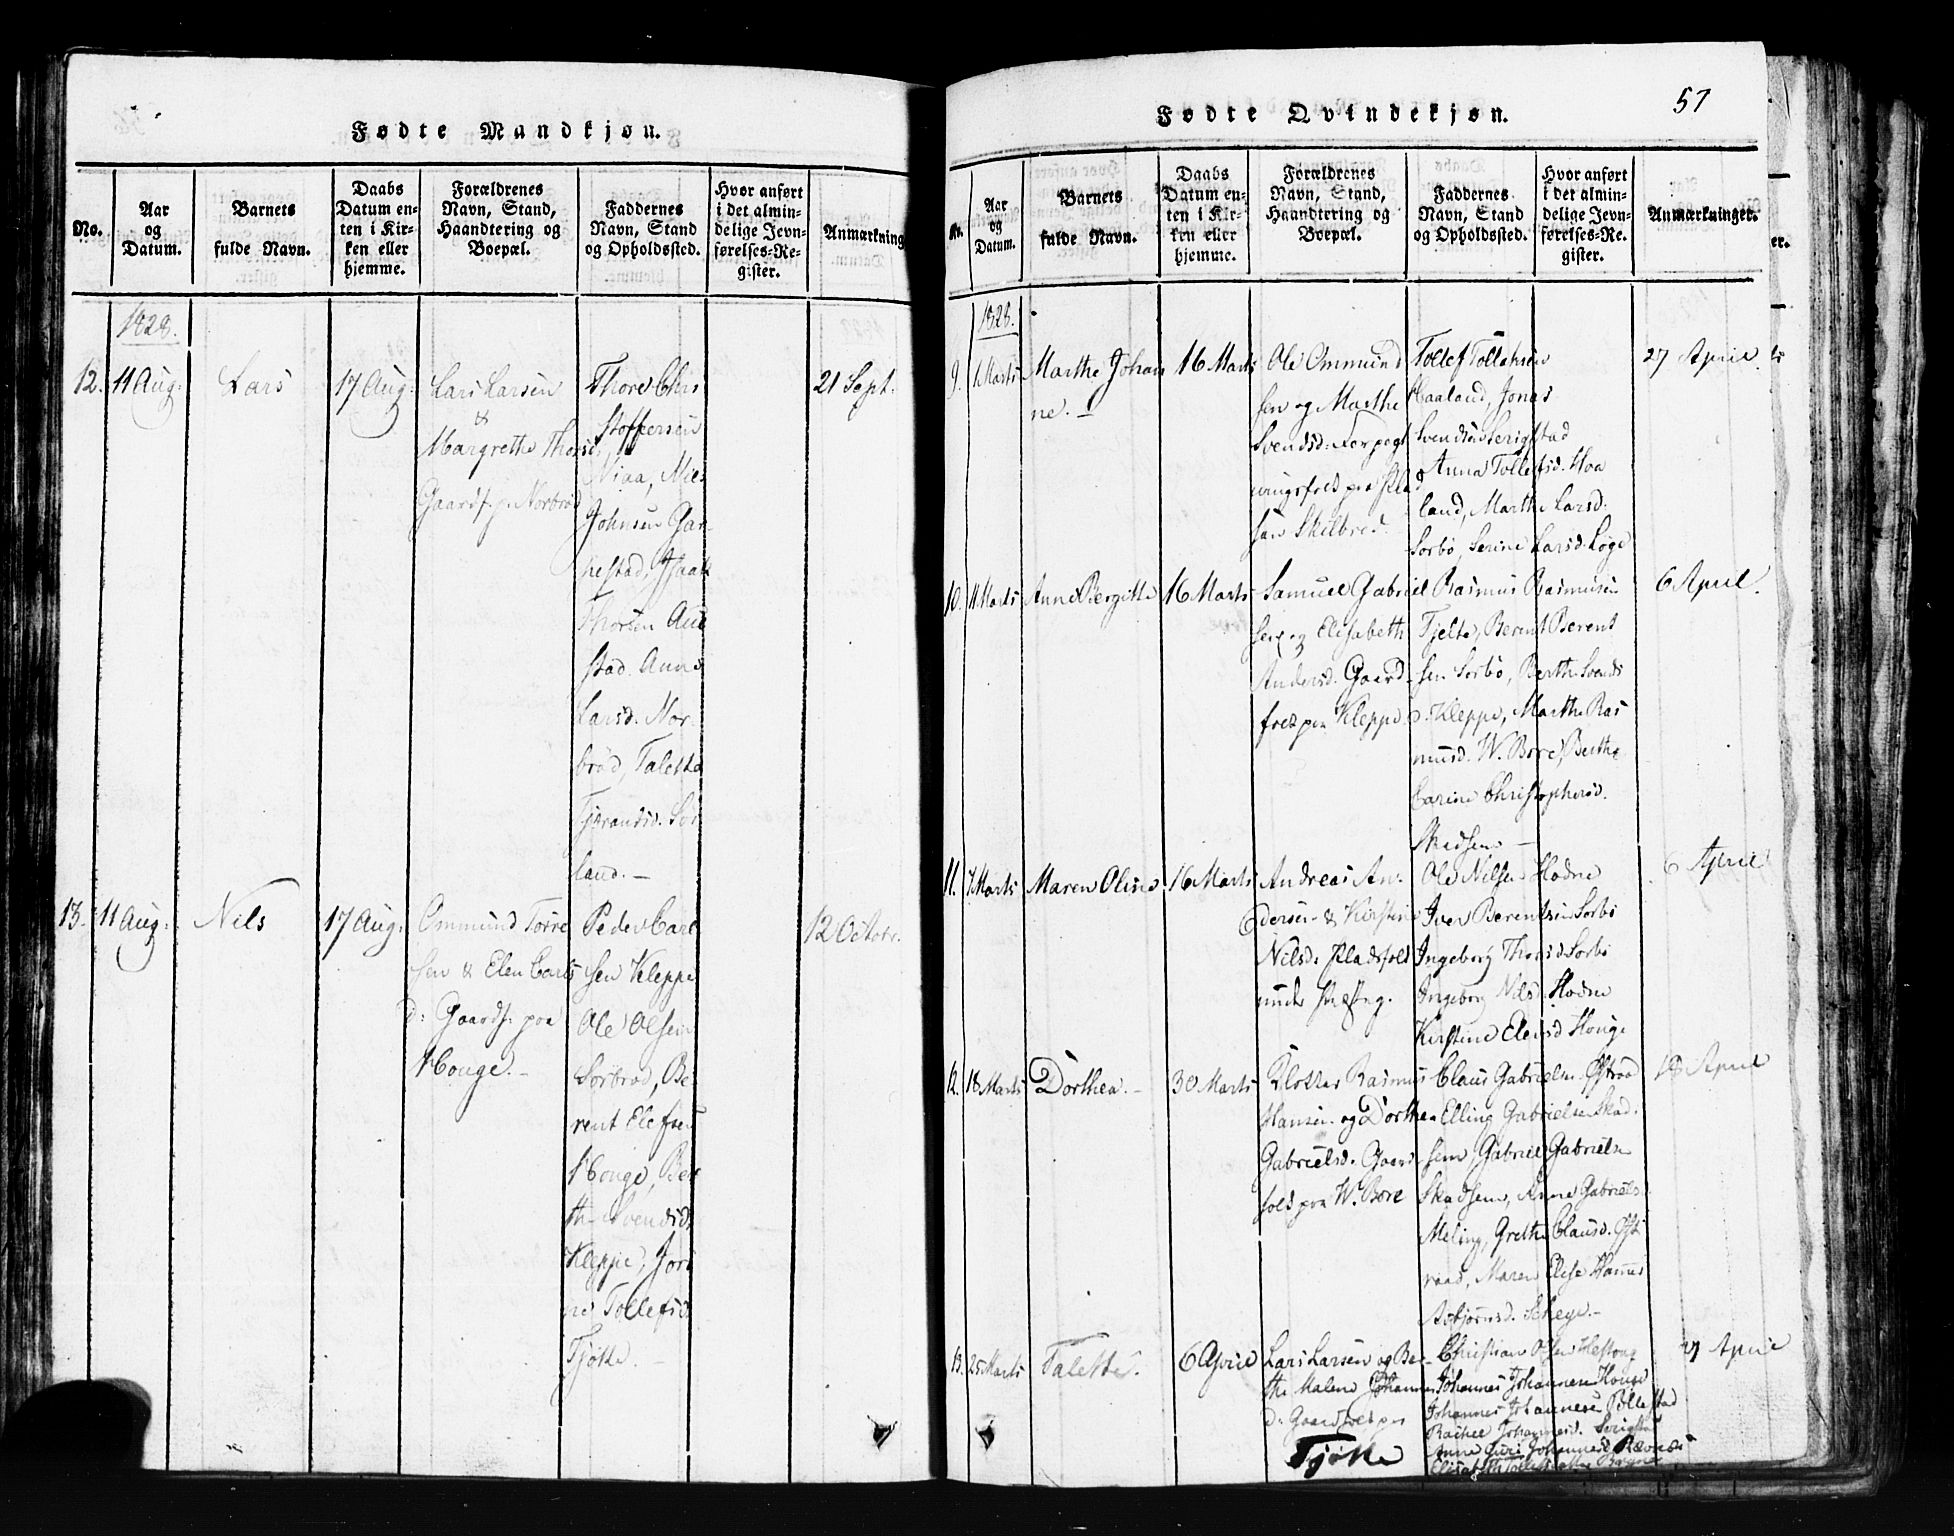 Fødte Mandkjøn.
No.
Aar
og
Datum.
Barnets
fulde Navn.
Daabs
Datum en-
ten i Kir-
ken eller
hjemme.
Forældrenes
Navn, Stand,
Haandtering og
Boepæl.
Faddernes
Navn, Stand
og Opholdssted.
Hvor anført
i det almin-
delige Jevn-
førelses-Re-
gister.
Anmærkning
1828.
12.
11 Aug:
Lars
17 Aug:
Lars Larsen
&
Margrethe Thorsd.
Gaardf. p. Norbrød
Thore Chri
stoffersen
Niaa, Niels
Johnsen Gar
pestad, Isaak
Thorsen Aue
stad. Anne
Larsd. Nor
brød, Taletha
Tjerandsd. Sør
land. —
21 Sept.
13.
11 Aug:
Nils
17 Aug:
Ommund Torre
sen & Elen Carls
d: Gaardf. paa
Houge. —
Peder Carl
sen Kleppe
Ole Olsen
Sørbrød, Be
rent Elefsen
Houge, Ber
the Svendsd.
Kleppe, Jori
ne Tollefsd.
Tjøtte. —
12 Octobr.
57
Fødte Qvindekjøn.
No.
Aar
og
Datum.
Barnets
fulde Navn.
Daabs
Datum en-
ten i Kir-
ken eller
hjemme.
Forældrenes
Navn, Stand,
Haandtering og
Boepæl.
Faddernes
Navn, Stand
og Opholdssted.
Hvor anført
i det almin-
delige Jevn-
førelses-Re-
gister.
Anmærkninger.
1828.
9.
Marts
Marthe Johan
ne. —
16 Marts
Ole Ommund
sen og Marthe
Svendsd.
Skilbred.
Tollef Tollefsen
Haaland, Jonas
Svendsen Serigstad
Anna Tollefsd. Haa
land, Marthe Larsd.
Sorbø, Serine Larsd. Løge
27 April
10.
11 Marts
Anne Bergitte
16 Marts
Samuel Gabriel
sen og Elisabeth
Andersd. Gaard
folk paa Kleppe
Rasmus Rasmussen
Tjelte, Berent Berent
sen Sorbø, Berthe Svends
d. Kleppe, Marthe Ras
musd. W. Bore, Berthe
Carine Christophersd.
Skadsem —
6 April.
11.
7 Marts
Maren Oline
16 Marts
Andreas An-
dersen & Kirstine
Nilsd. Pladsfolk
under
Ole Nilsen Hodne
Iver Berentsen Sorbø
Ingeborg Thorsd. Sorbø
Ingeborg Nilsd. Hodne
Kirstine Elevsd. Houge
6 April
12.
18 Marts
Dorthea. —
30 Marts
Klokker Rasmus
Hansen og Dorthea
Gabrielsd. Gaard
folk paa W. Bore
Claus Gabrielsen Østraad
Elling Gabrielsen Skad-
sem, Gabriel Gabrielsen
Skadsem, Anne Gabrielsd.
Meling, Grethe Clausd. Øst
raad, Maren Elise Hansd.
Asbjørnsd. Scheye. —
18 April
13.
25 Marts
Talette.
6 April
Lars Larsen og Ber-
the Malene Johannes
d: Gaardfolk paa
Tjøtte
Christian Olsen
Johannes Johannesen Houge
Johannes Johannesen Pollestad
Rachel Johannesd.
Anne Guri Johannesd.
Elisabeth
27 April